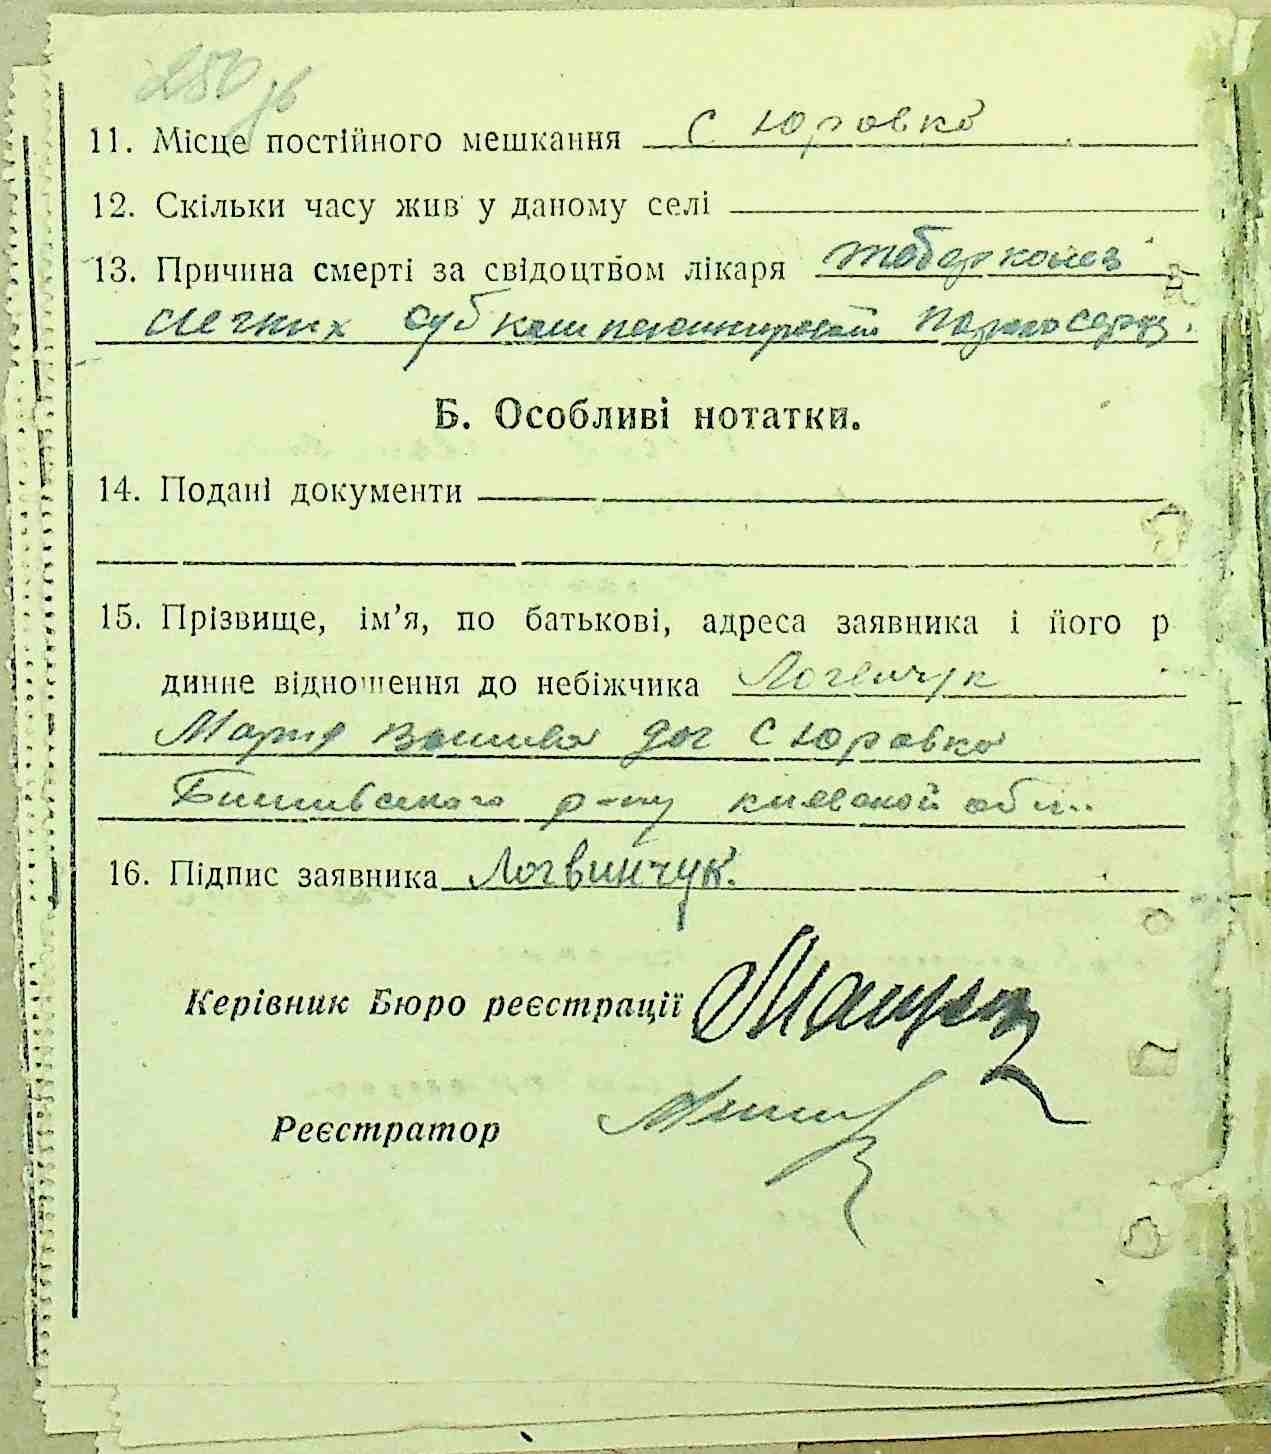 250 зв
11. Місце постійного мешкання с Юровка
12. Скільки часу жив у даному селі
13. Причина смерті за свідоцтвом лікаря
легких
Б. Особливі нотатки.
14. Подані документи
15. Прізвище, ім’я, по батькові, адреса заявника і його р
динне відношення до небіжчика Логвинчук
Мария с Юровка
р-ну киевской обл.
16. Підпис заявника Логвинчук.
Керівник Бюро реєстрації
Реєстратор